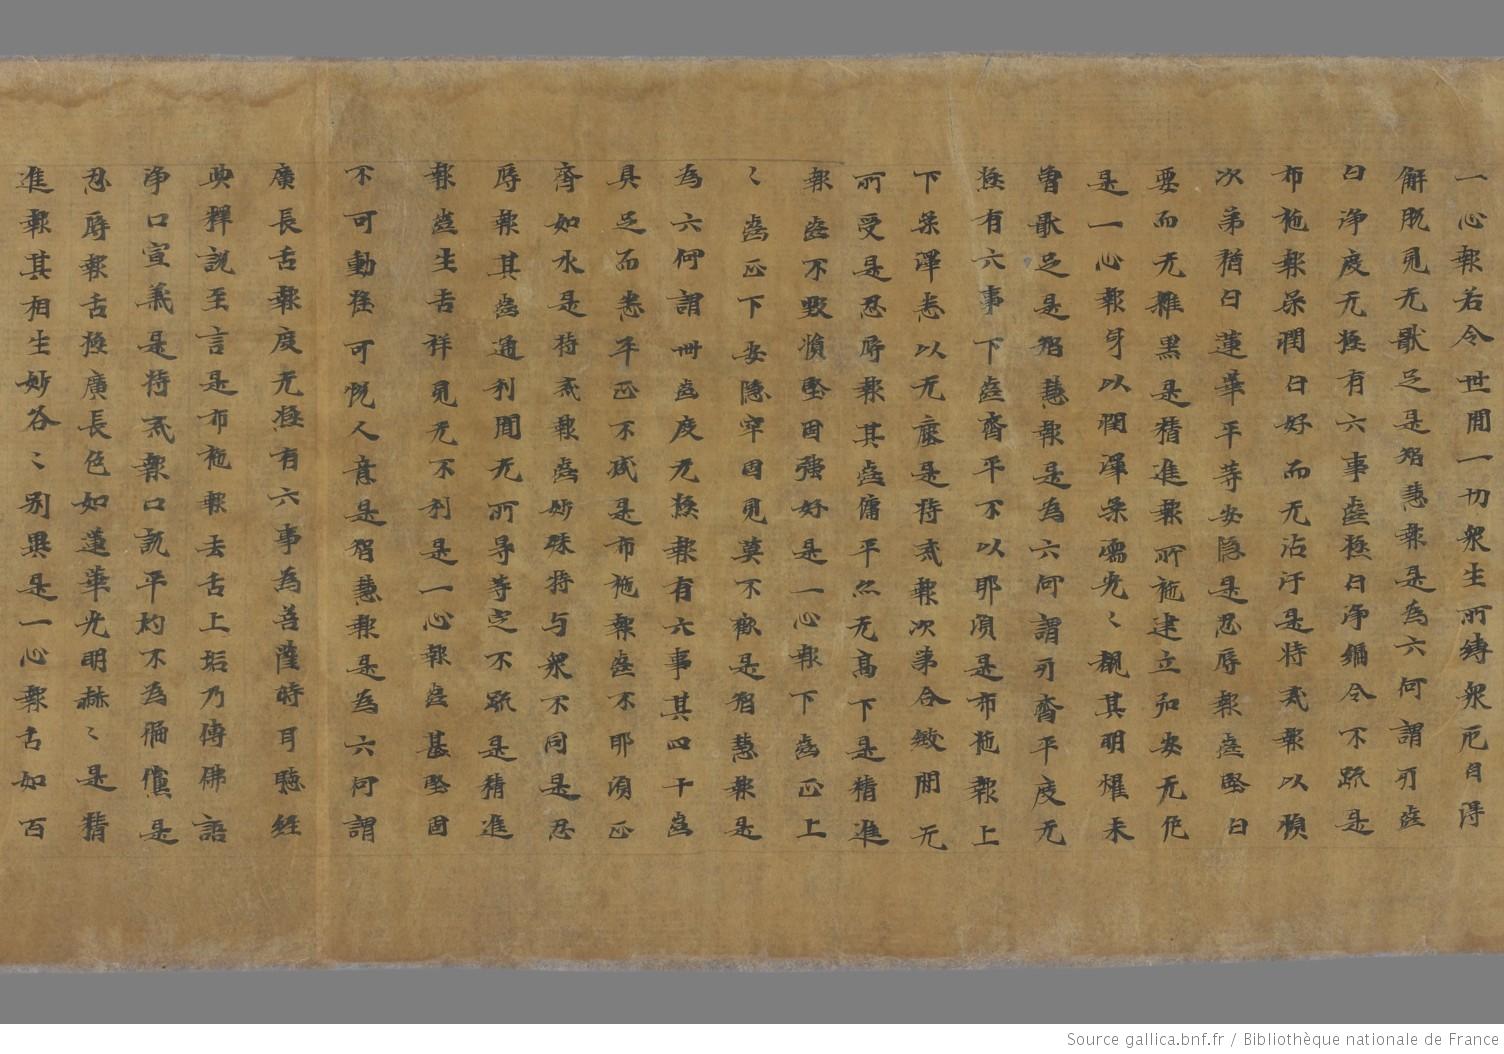 一心報若令世間一切衆生所縛衆厄自淂
解脫見无猒足是智慧報是為六何謂牙齒
曰淨度无極有六事齒極白淨鮮令不踈是
布施報柔潤曰好而无沾汙是持戒報以順
次第猶曰蓮華平等安隱是忍辱報齒堅白
要而无雜黑是精進報所施建立和安无厄
是一心報身以潤澤柔濡光〻覩其明燿未
曾猒足是智慧報是為六何謂牙齊平度无
極有六事下齒齊平不以耶湏是布施報上
下柔澤悉以无麁是持戒報次第合緻間无
所受是忍辱報其齒傭平亦无髙下是精進
報齒不毀損堅固強好是一心報下齒正上
〻齒正下安隱牢固見莫不歡是智慧報是
為六何謂卌齒度无極報有六事其四十齒
具足而悉平正不減是布施報齒不耶湏正
齊如水是持戒報齒妙殊特与衆不同是忍
辱報其齒通利間无所㝵等定不踈是精進
報齒生吉祥見无不利是一心報齒甚堅固
不可動揺可悅人意是智慧報是為六何謂
廣長舌報度无極有六事為菩薩時耳聴經
典釋說至言是布施報去舌上垢乃傳佛語
淨口宣義是持戒報口說平均不為偏儻是
忍辱報舌極廣長色如蓮華光明赫〻是精
進報其相生妙各〻別異是一心報舌如百